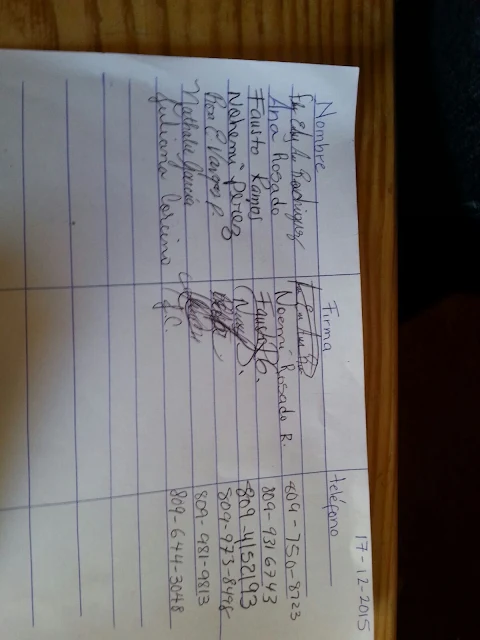 17-12-2015
Nombre Firma teléfono
Rodriguez 809-750-8723
Ana Rosado Noemi Rosado R. 809-9316743
Fausto Ramos Fausto R. 809-4152193
Nohemi perez 809-973-8498
Vargas P. 809-981-9813
Nathalie Garcia
Juliana Cancino J.C. 809-644-3048